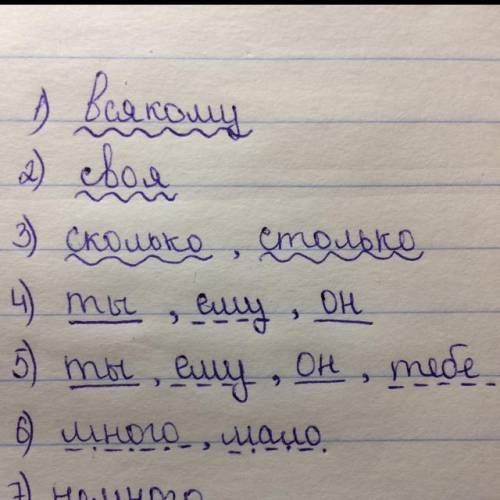 1) всякому
2) своя
3) сколько, столько
4) ты, ему, он
5) ты, ему, он, тебе
6) много, мало
7) немного